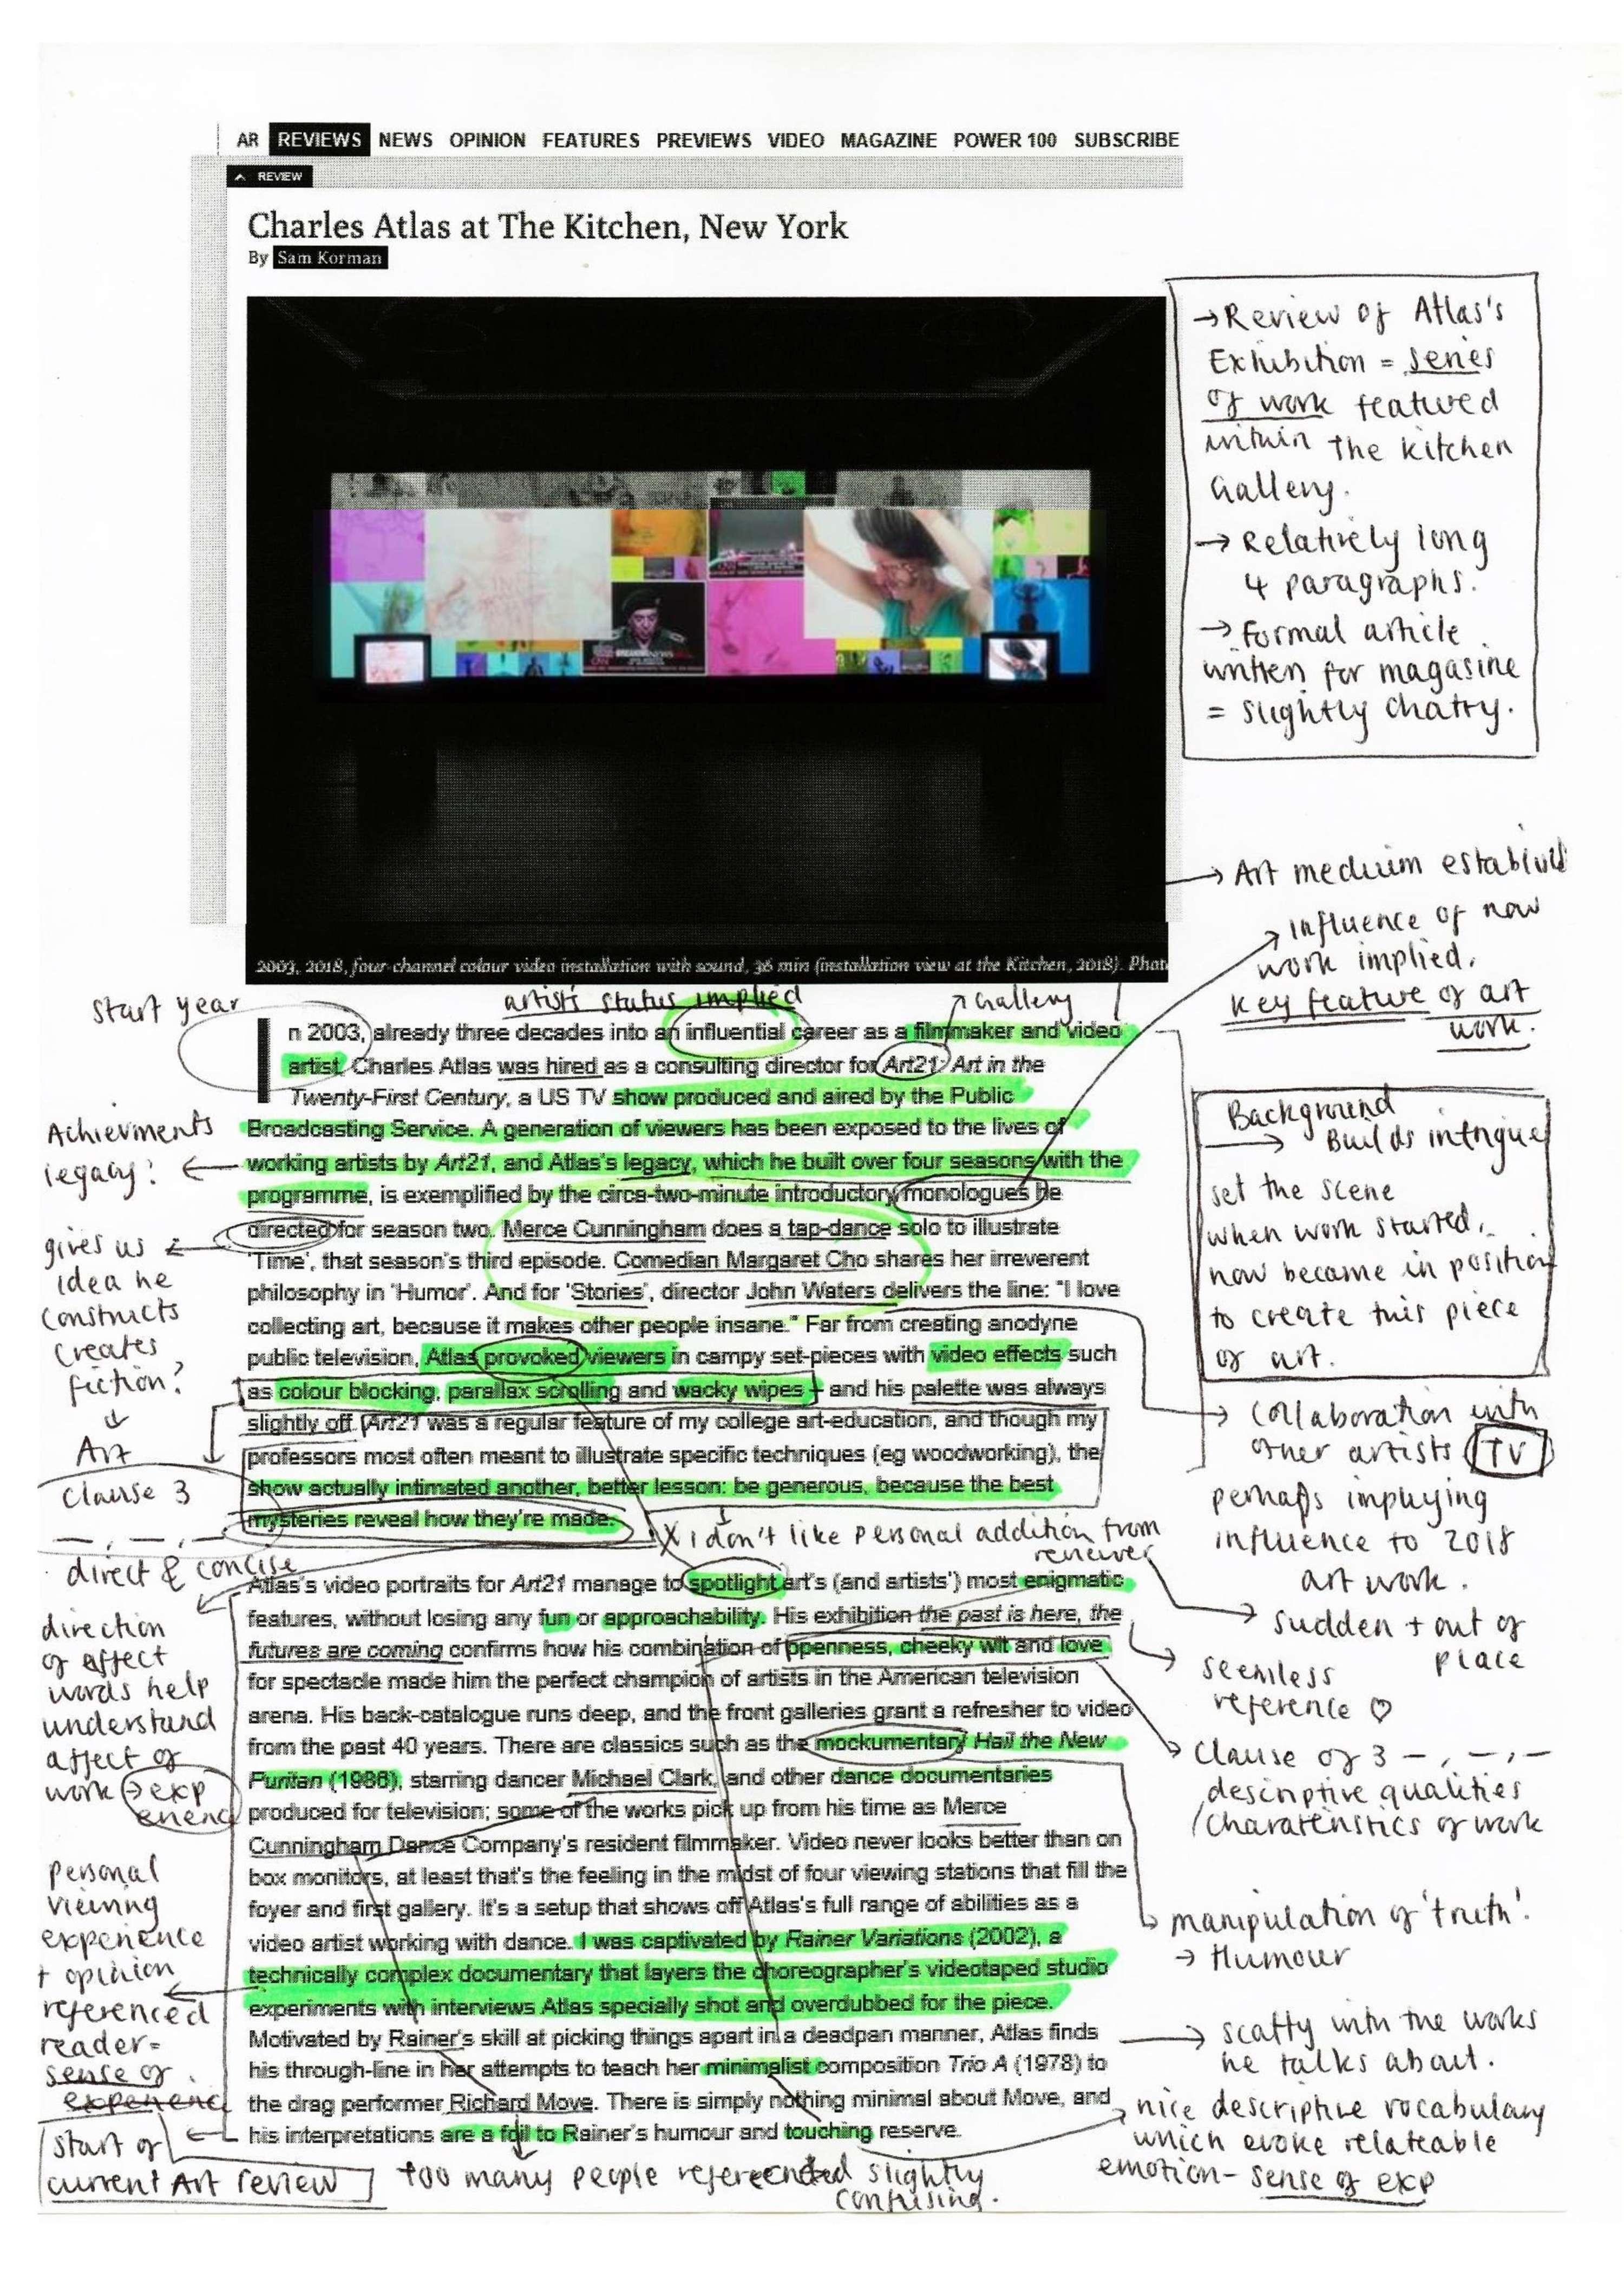 AR REVIEWS NEWS OPINION FEATURES PREVIEWS VIDEO MAGAZINE POWER 100 SUBSCRIBE
REVIEW
Charles Atlas at The Kitchen, New York
By Sam Korman
→ Review of Atlas's
Exhibition = series
of work featured
within the kitchen
Gallery.
→ Relatively long
4 paragraphs.
→ Formal article
written for magasine
= slightly chatty.
2003, 2018, four-channel colour video installation with sound, 36 min (installation view at the Kitchen, 2018). Phot
→ Art medium
→ influence of now
work implied.
key feature of art
work.
start year
artist's status implied
Gallery
In 2003, already three decades into an influential career as a filmmaker and video
artist, Charles Atlas was hired as a consulting director for Art21: Art in the
Twenty-First Century, a US TV show produced and aired by the Public
Broadcasting Service. A generation of viewers has been exposed to the lives of
working artists by Art21, and Atlas's legacy, which he built over four seasons with the
programme, is exemplified by the circa-two-minute introductory monologues he
directed for season two. Merce Cunningham does a tap-dance solo to illustrate
'Time', that season's third episode. Comedian Margaret Cho shares her irreverent
philosophy in 'Humor'. And for 'Stories', director John Waters delivers the line: "I love
collecting art, because it makes other people insane." Far from creating anodyne
public television, Atlas provoked viewers in campy set-pieces with video effects such
as colour blocking, parallax scrolling and wacky wipes – and his palette was always
slightly off. (Art21 was a regular feature of my college art-education, and though my
professors most often meant to illustrate specific techniques (eg woodworking), the
show actually intimated another, better lesson: be generous, because the best
mysteries reveal how they're made.
Achievments
legacy!
gives us
idea he
constructs
creates
fiction?
↓
Art
Clause 3
— , — , —
direct & concise
Background
→ Builds intrigue
set the scene
when work started,
now became in position
to create this piece
of art.
→ collaboration with
other artists TV
perhaps implying
influence to 2018
art work.
X i don't like personal addition from
reviewer
→ sudden + out of
place
Atlas's video portraits for Art21 manage to spotlight art's (and artists') most enigmatic
features, without losing any fun or approachability. His exhibition the past is here, the
futures are coming confirms how his combination of openness, cheeky wit and love
for spectacle made him the perfect champion of artists in the American television
arena. His back-catalogue runs deep, and the front galleries grant a refresher to video
from the past 40 years. There are classics such as the mockumentary Hail the New
Puritan (1986), starring dancer Michael Clark, and other dance documentaries
produced for television; some of the works pick up from his time as Merce
Cunningham Dance Company's resident filmmaker. Video never looks better than on
box monitors, at least that's the feeling in the midst of four viewing stations that fill the
foyer and first gallery. It's a setup that shows off Atlas's full range of abilities as a
video artist working with dance. I was captivated by Rainer Variations (2002), a
technically complex documentary that layers the choreographer's videotaped studio
experiments with interviews Atlas specially shot and overdubbed for the piece.
Motivated by Rainer's skill at picking things apart in a deadpan manner, Atlas finds
his through-line in her attempts to teach her minimalist composition Trio A (1978) to
the drag performer Richard Move. There is simply nothing minimal about Move, and
his interpretations are a foil to Rainer's humour and touching reserve.
direction
of affect
words help
understand
affect of
work → exp
erience
personal
viewing
experience
+ opinion
referenced
reader=
sense of
experience
start of
current Art review
→ seemless
reference ♡
→ Clause of 3 — , — , —
descriptive qualities
/charateristics of work
manipulation of 'truth'.
→ Humour
→ scatty with the works
he talks about.
nice descriptive vocabulary
which evoke relateable
emotion – sense of exp
too many people referecnded slightly
confusing.